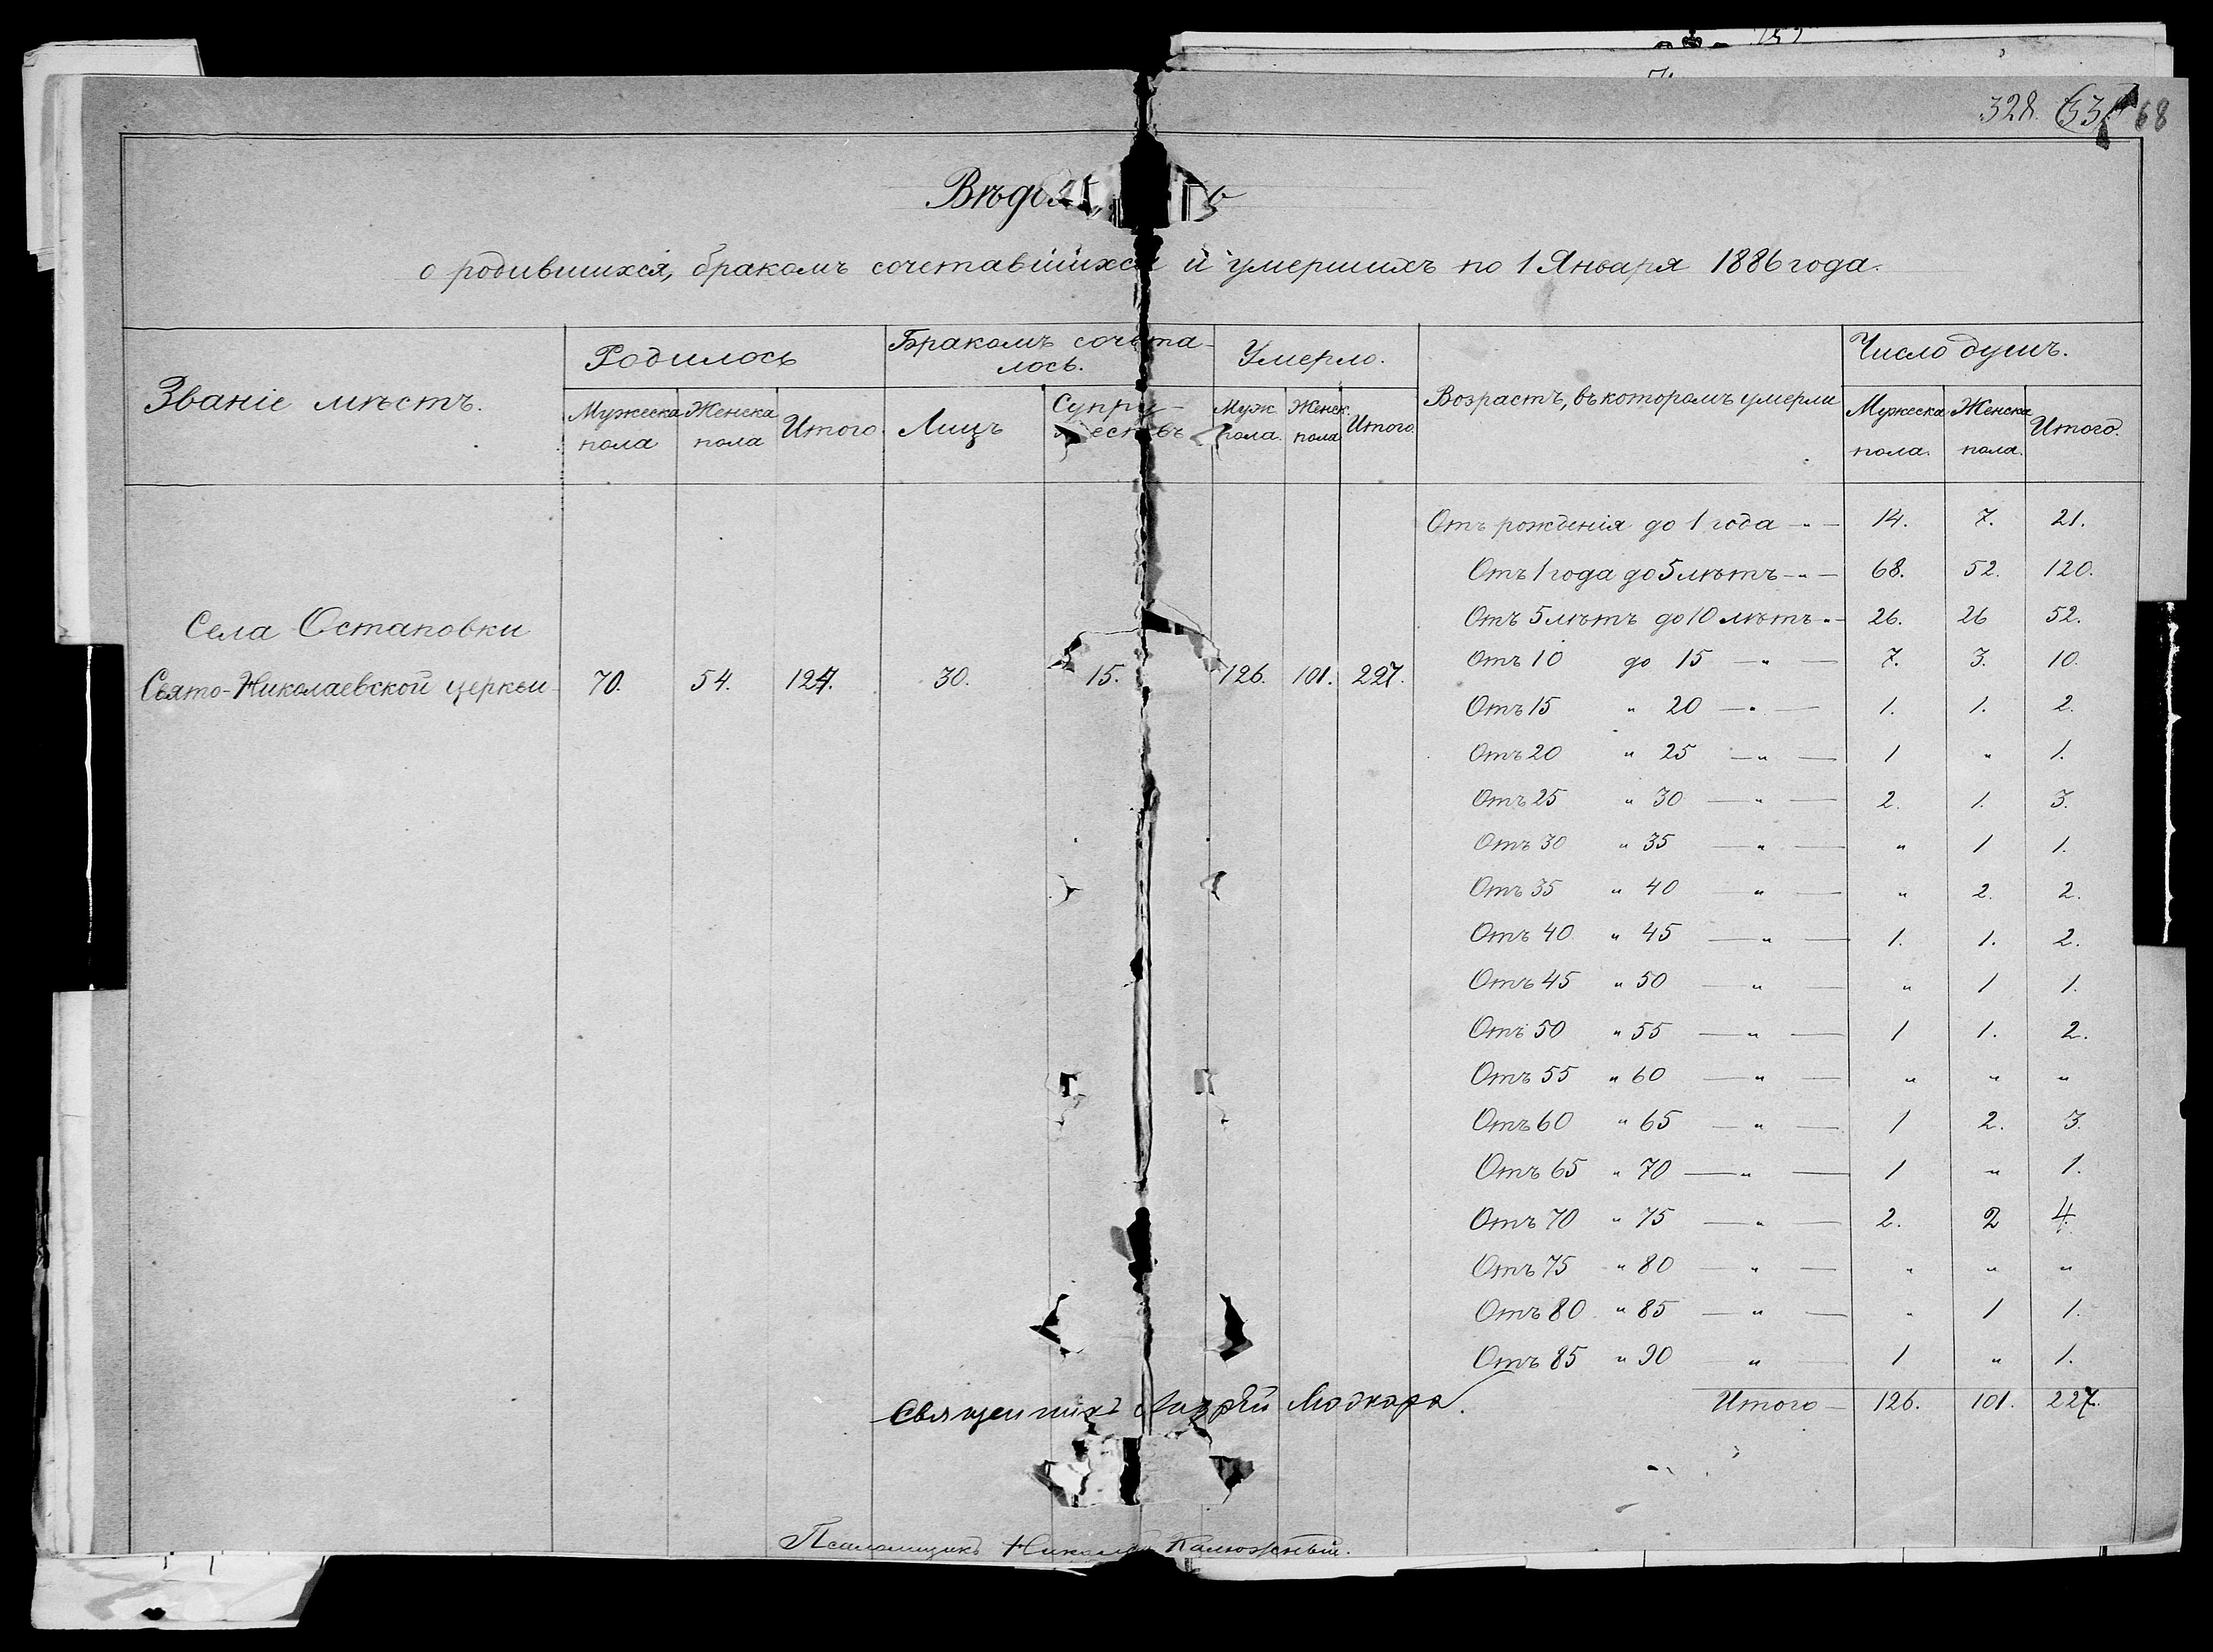 328. 68
о родившихся, бракомъ сочетавшихся и умершихъ по 1 Января 1886 года.
Званіе мѣстъ. Родилось Бракомъ сочета- Умерло. Возрастъ, въ которомъ умерли Число душъ.
лось.
Мужеска Женска Итого. Лицъ Супру- Муж. Женск. Итого. Мужеска Женска Итого.
пола пола пола. пола пола. пола.
Отъ рожденія до 1 года —„— 14. 7. 21.
Отъ 1 года до 5 лѣтъ —„— 68. 52. 120.
Села Остаповки Отъ 5 лѣтъ до 10 лѣтъ „— 26. 26 52.
Свято-Николаевской церкви 70. 54. 124. 30. 15. 126. 101. 227. Отъ 10 до 15 —„— 7. 3. 10.
Отъ 15 „ 20 —„— 1. 1. 2.
Отъ 20 „ 25 —„— 1 „ 1.
Отъ 25 „ 30 —„— 2. 1. 3.
Отъ 30 „ 35 —„— „ 1 1.
Отъ 35 „ 40 —„— „ 2. 2.
Отъ 40 „ 45 —„— 1. 1. 2.
Отъ 45 „ 50 —„— „ 1 1.
Отъ 50 „ 55 —„— 1 1. 2.
Отъ 55 „ 60 —„— „ „ „
Отъ 60 „ 65 —„— 1 2. 3.
Отъ 65 „ 70 —„— 1 „ 1.
Отъ 70 „ 75 —„— 2. 2 4.
Отъ 75 „ 80 —„— „ „ „
Отъ 80 „ 85 —„— „ 1 1.
Отъ 85 „ 90 „ 1 „ 1.
Священникъ Итого — 126. 101. 227.
Псаломщикъ Николай Калюжный.